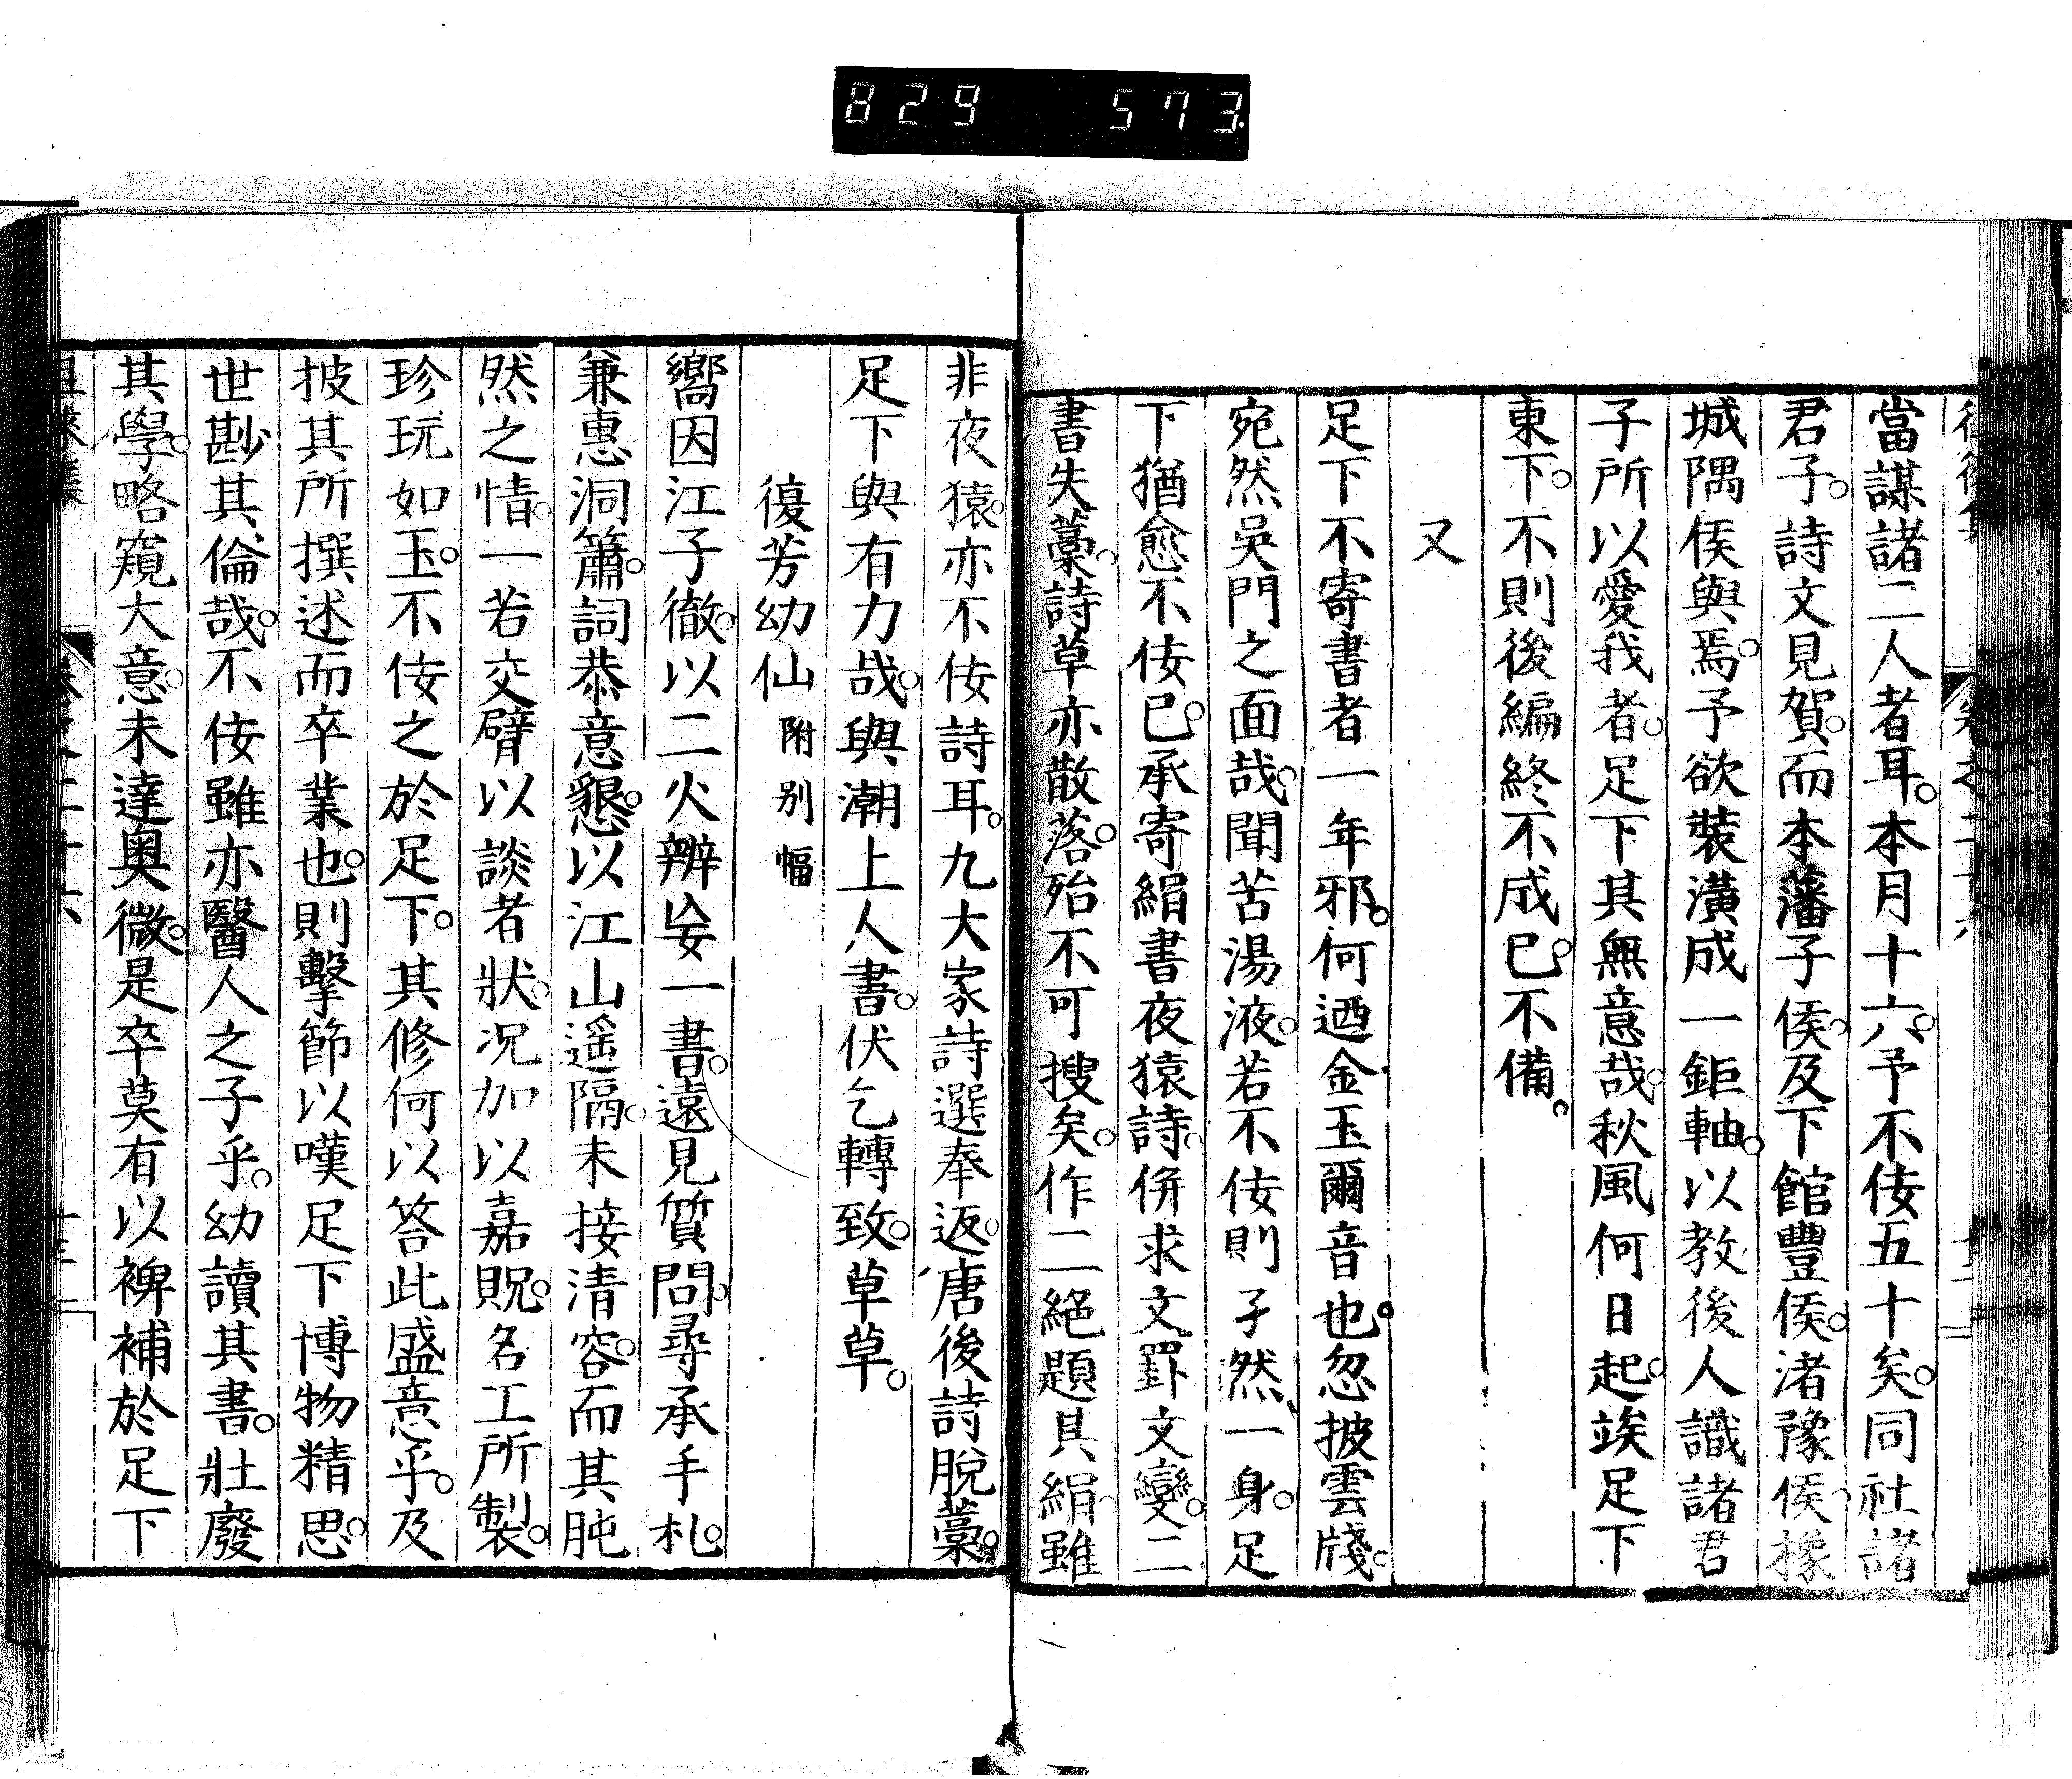 829 573
當謀諸二人者耳。本月十六。予不佞五十矣。同社諸
君子。詩文見賀。而本藩子侯。及下館豐侯。渚豫侯。㨾
城隅侯與焉。予欲裝潢成一鉅軸。以教後人識諸君
子所以愛我者。足下其無意哉。秋風何日起。竢足下
東下。不則後編終不成已。不備。
又
足下不寄書者一年邪。何迺金玉爾音也。忽披雲牋。
宛然吳門之面哉。聞苦湯液。若不佞則孑然一身。足
下猶愈不佞已。承寄絹書夜猿詩。併求文罫文變。二
書失藁。詩草亦散落。殆不可搜矣。作二絕題其絹。雖
非夜猿。亦不佞詩耳。九大家詩選奉返。唐後詩脫藁。
足下與有力哉。與潮上人書。伏乞轉致。草草。
復芳幼仙 附別幅
嚮因江子徹。以二火辨妄一書。遠見質問。尋承手札。
兼惠洞簫。詞恭意懇。以江山遥隔。未接清容。而其肫
然之情。一若交臂以談者狀。況加以嘉貺。名工所製。
珍玩如玉。不佞之於足下。其修何以答此盛意乎。及
披其所撰述而卒業也。則擊節以嘆足下博物精思。
世尠其倫哉。不佞雖亦醫人之子乎。幼讀其書。壯廢
其學。略窺大意。未達奧微。是卒莫有以裨補於足下